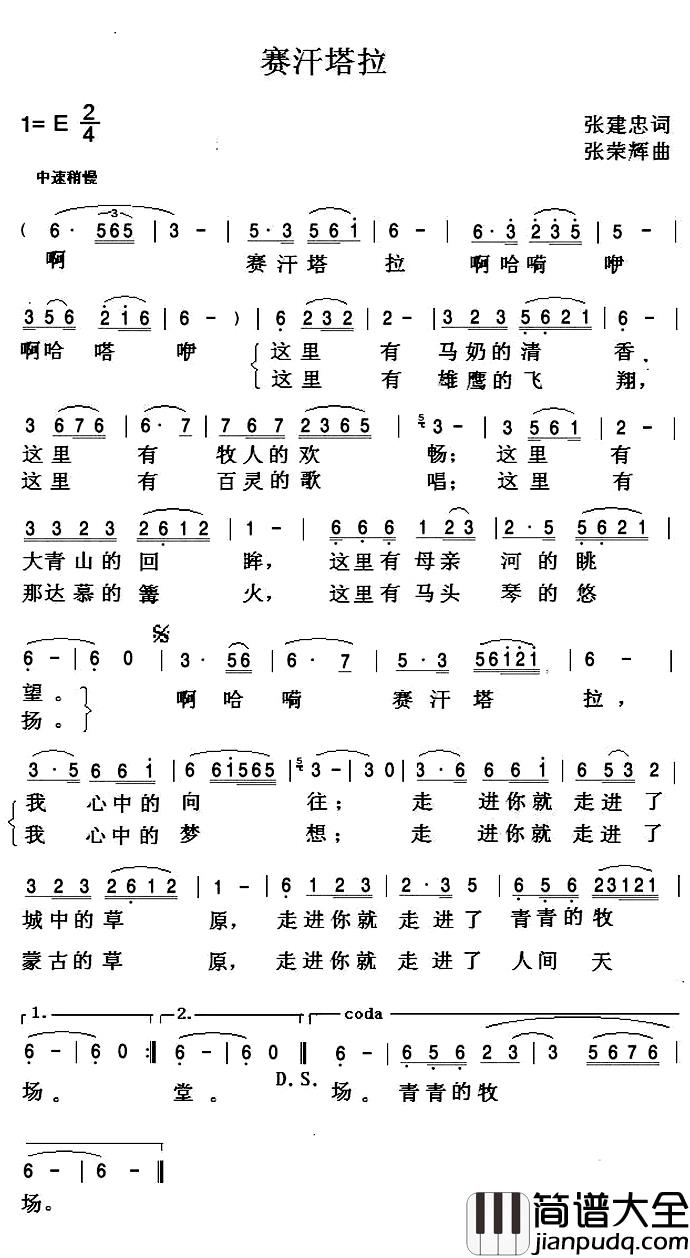 赛汗塔拉
1= E 2/4
张建忠词
张荣辉曲
中速稍慢
( 6· 565 | 3 - | 5·3 561 | 6 - | 6·3 235 | 5 - |
啊 赛汗塔 拉 啊哈嗬 咿
356 216 | 6 - ) | 6 232 | 2 - | 323 5621 | 6 - |
啊哈 嗒 咿 这里 有 马奶的清 香,
这里 有 雄鹰的飞 翔,
3 676 | 6·7 | 767 2365 | 5 3 - | 3 561 | 2 - |
这里 有 牧人的欢 畅; 这里 有
这里 有 百灵的歌 唱; 这里 有
3323 2612 | 1 - | 666 123 | 2·5 5621 |
大青山的回 眸, 这里有母亲 河的眺
那达慕的篝 火, 这里有马头 琴的悠
6 - | 6 0 | 3· 56 | 6· 7 | 5·3 56121 | 6 - |
望。 啊哈 嗬 赛汗塔 拉,
扬。
3·5 661 | 6 61565 | 5 3 - | 3 0 | 3·6 661 | 653 2 |
我 心中的向 往; 走 进你就走进了
我 心中的梦 想; 走 进你就走进了
323 2612 | 1 - | 6 123 | 2·35 | 656 23121 |
城中的草 原, 走进你就 走进了 青青的牧
蒙古的草 原, 走进你就 走进了 人间 天
1. 2. coda
6 - | 6 0 :‖ 6 - | 6 0 ‖ 6 - | 656 23 | 3 5676 |
场。 堂。 D.S. 场。 青青的牧
6 - | 6 - ‖
场。
简谱大全
jianpudq.com